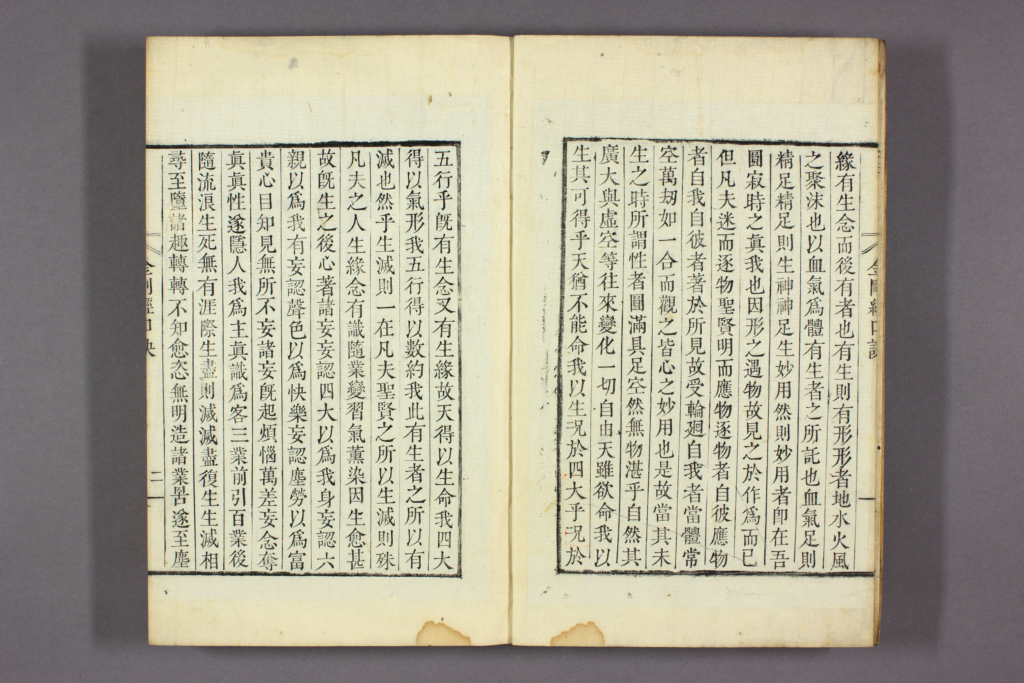 緣有生念而後有者也有生則有形形者地水火風
之聚沫也以血氣爲體有生者之所託也血氣足則
精足精足則生神神足生妙用然則妙用者卽在吾
圓寂時之眞我也因形之遇物故見之於作爲而已
但凡夫迷而逐物聖賢明而應物逐物者自彼應物
者自我自彼者著於所見故受輪廻自我者當體常
空萬刼如一合而觀之皆心之妙用也是故當其未
生之時所謂性者圓滿具足空然無物湛乎自然其
廣大與虛空等往來變化一切自由天雖欲命我以
生其可得乎天猶不能命我以生况於四大乎况於
五行乎旣有生念又有生緣故天得以生命我四大
得以氣形我五行得以數約我此有生者之所以有
滅也然乎生滅則一在凡夫聖賢之所以生滅則殊
凡夫之人生緣念有識隨業變習氣薰染因生愈甚
故旣生之後心著諸妄妄認四大以爲我身妄認六
親以爲我有妄認聲色以爲快樂妄認塵勞以爲富
貴心目知見無所不妄諸妄旣起煩惱萬差妄念奪
眞眞性遂隱人我爲主眞識爲客三業前引百業後
隨流浪生死無有涯際生盡則滅滅盡復生生滅相
尋至墮諸趣轉轉不知愈恣無明造諸業罟遂至塵
金剛經口訣
二